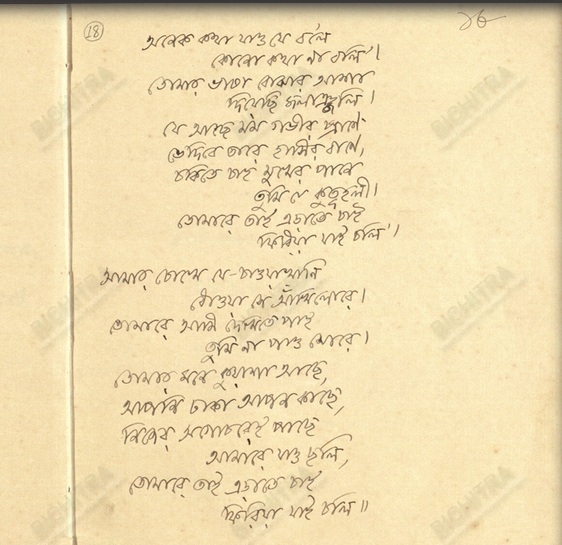 18
১৮
অনেক কথা যাও যে ব'লে
কোনো কথা না বলি'।
তোমার ভাষা বোঝার আশা
দিয়েছি জলাঞ্জলি।
যে আছে মম গভীর প্রাণে
ভেদিবে তারে হাসির বাণে,
চকিতে চাহ মুখের পানে
তুমি যে কুতূহলী।
তোমারে তাই এড়াতে চাই
ফিরিয়া যাই চলি'।
আমার চোখে যে-চাওয়াখানি
ধোওয়া সে আঁখিলোরে।
তোমারে আমি দেখিতে পাই
তুমি না পাও মোরে।
তোমার মনে কুয়াশা আছে,
আপনি ঢাকা আপন কাছে,
নিজের অগোচরেই পাছে
আমারে যাও ছলি,
তোমারে তাই এড়াতে চাই
ফিরিয়া যাই চলি॥
BICHITRA
BICHITRA
BICHITRA
BICHITRA
BICHITRA
BICHITRA